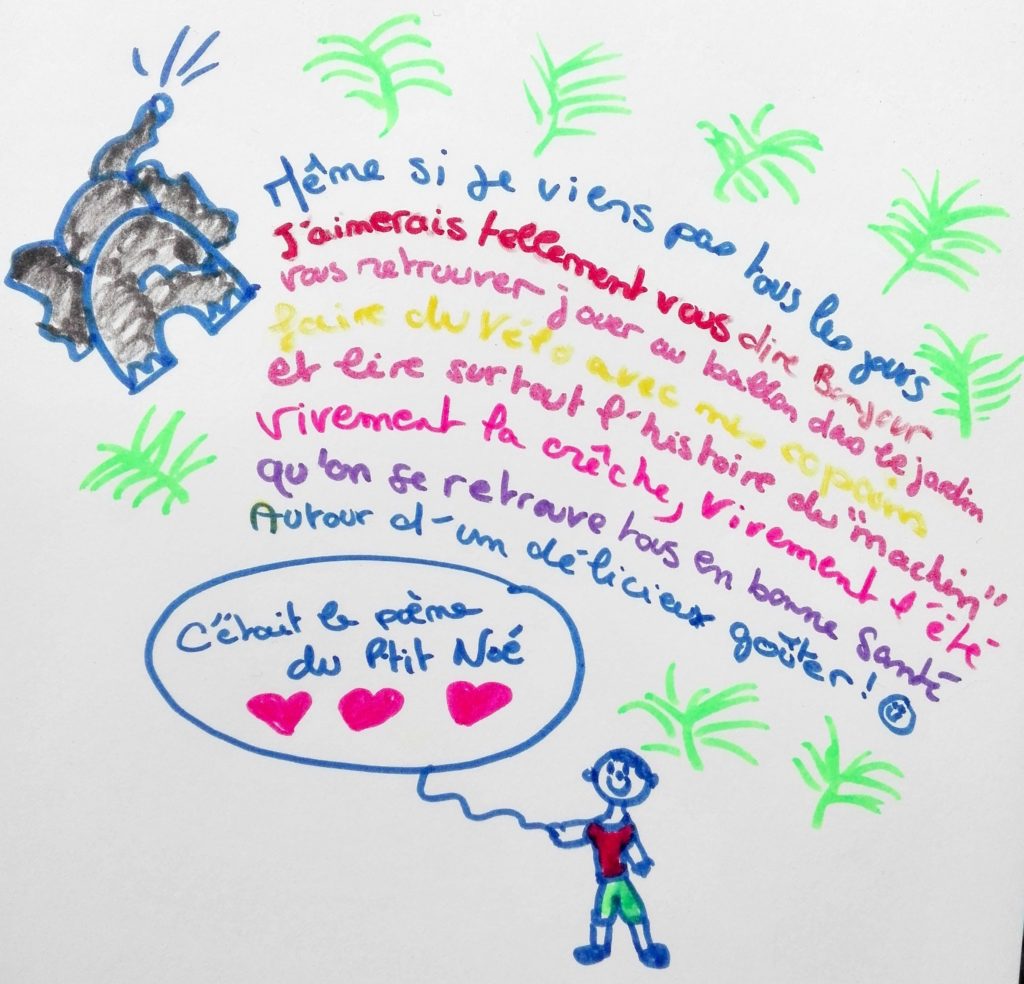 Même si je viens pas tous les jours
J'aimerais tellement vous dire Bonjour
vous retrouver jouer au ballon dans le jardin
faire du vélo avec mes copains
et lire surtout l'histoire du "machin"
vivement la crêche, vivement l'été
qu'on se retrouve tous en bonne santé
Autour d'un délicieux goûter!
C'était le poème
du P'tit Noé